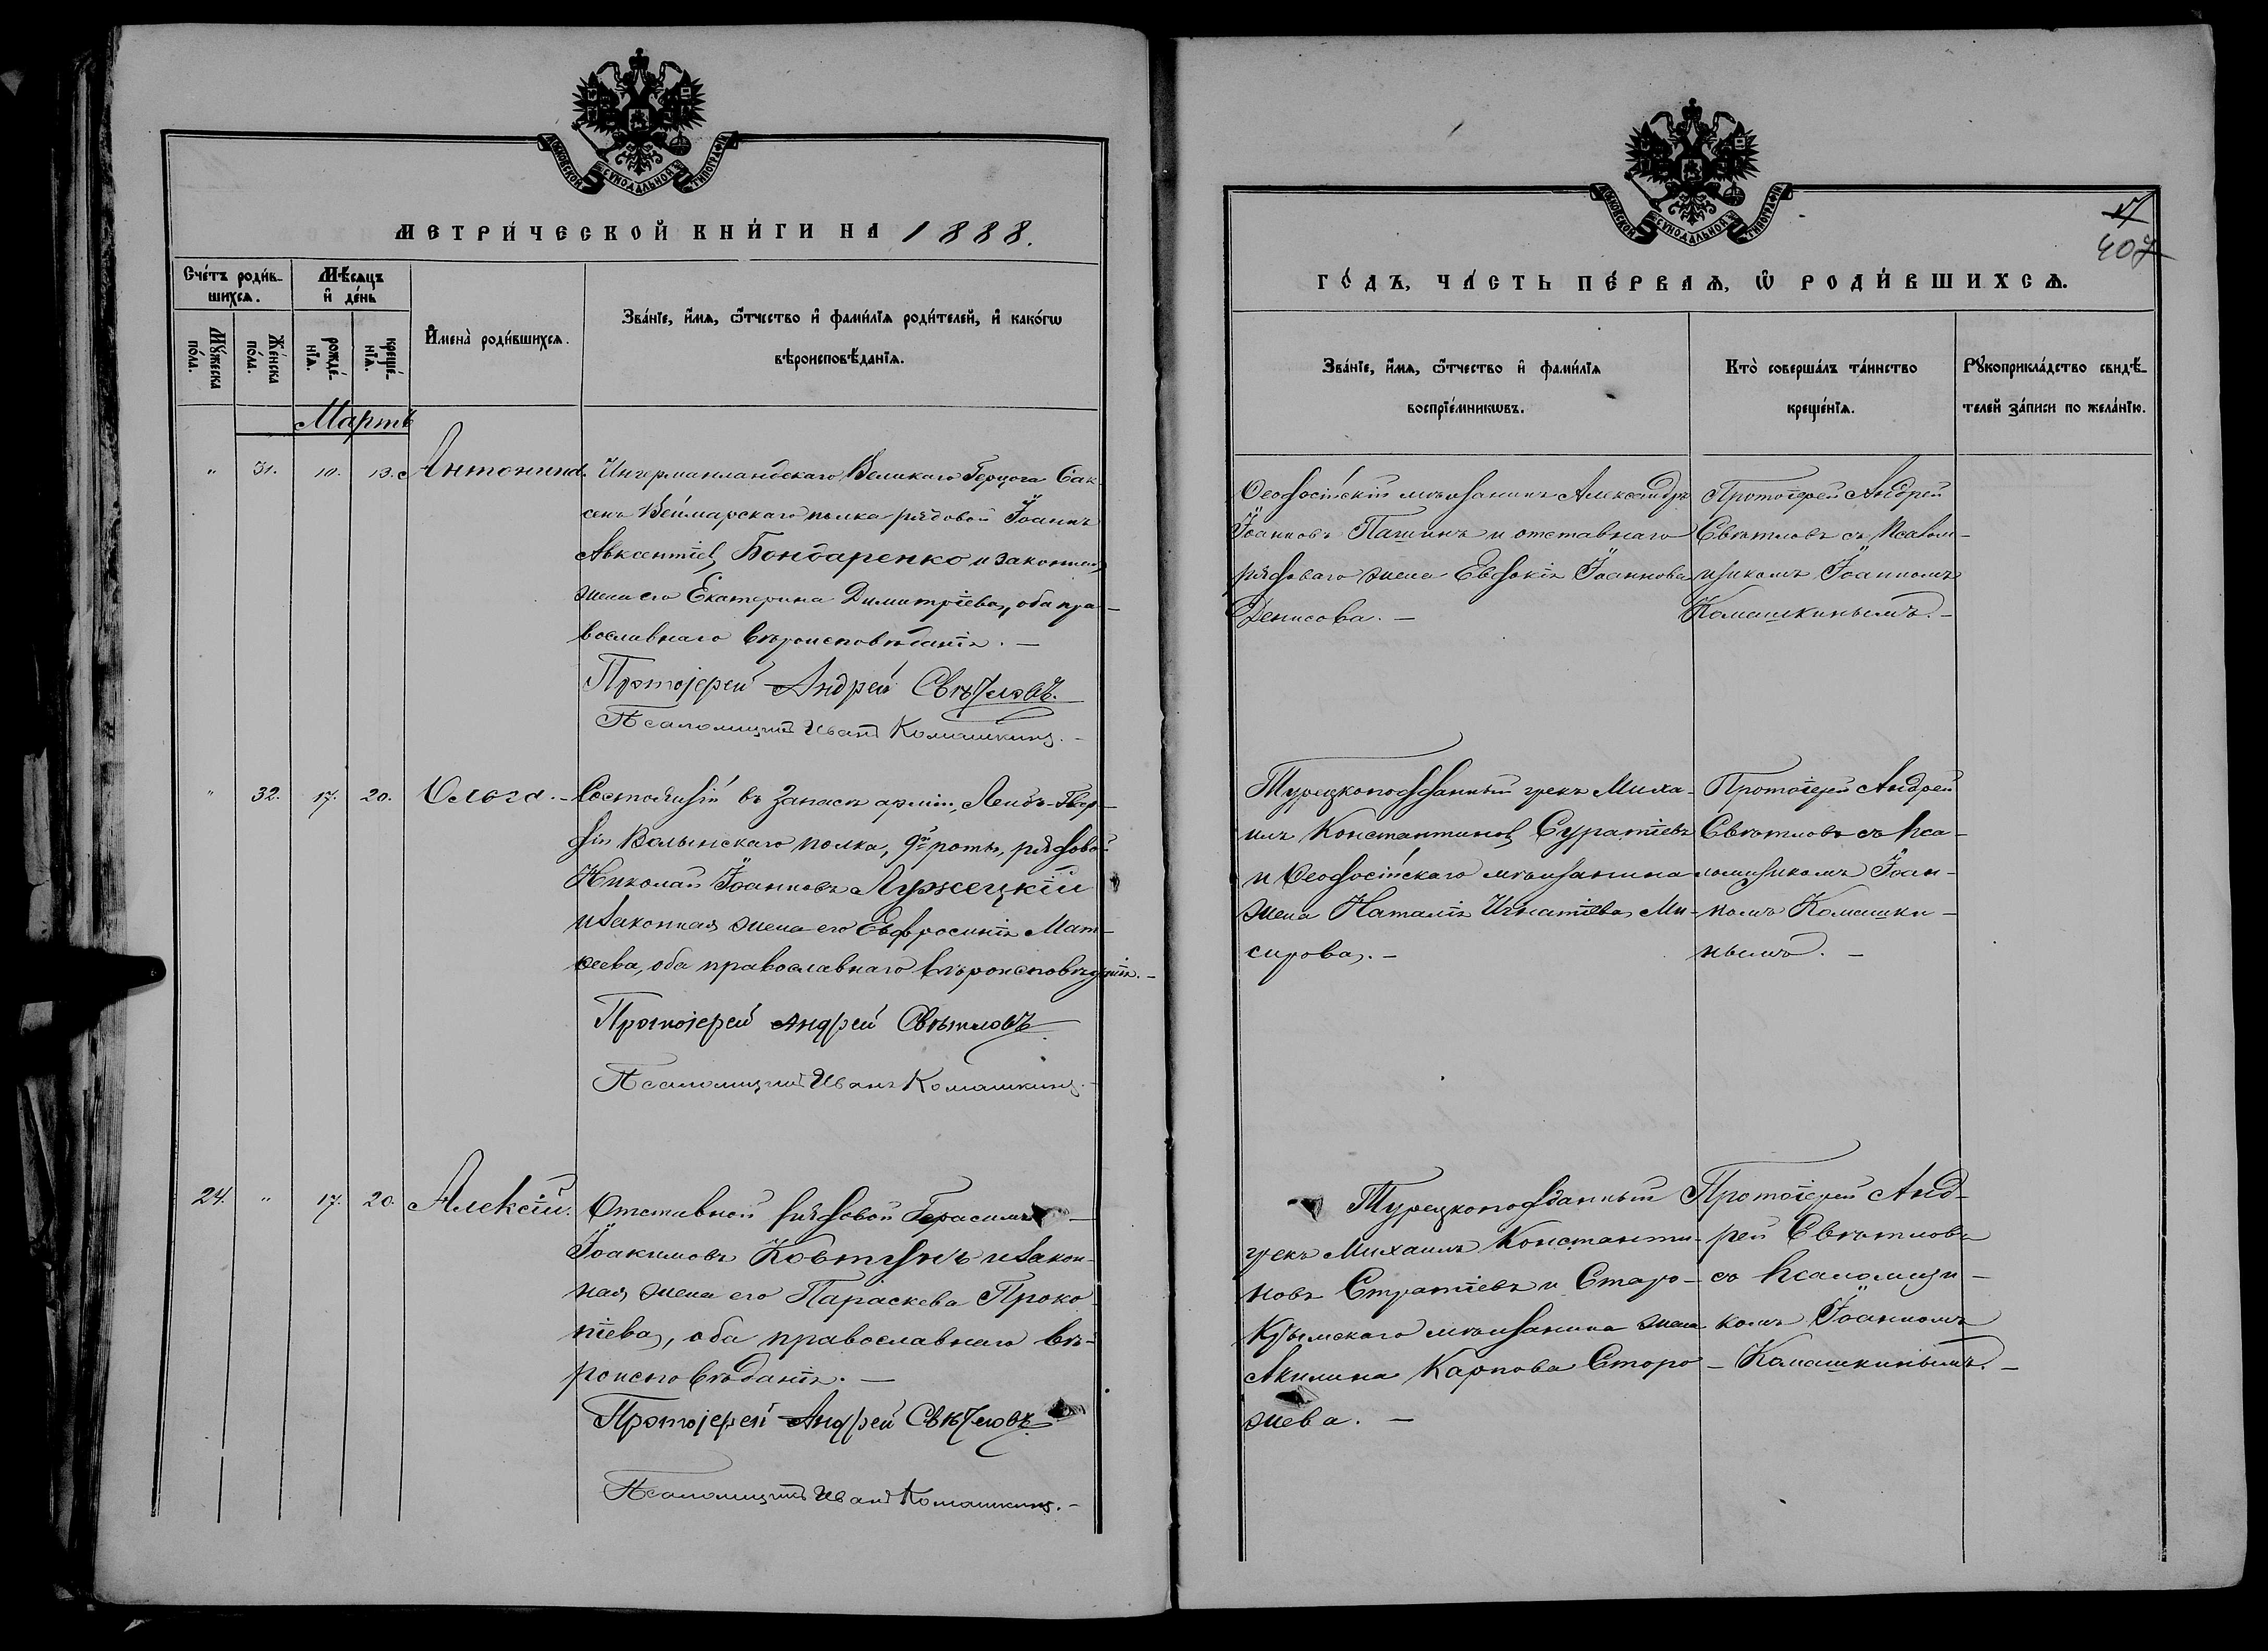 МОСКОВСКОЙ СѴНОДАЛЬНОЙ ТИПОГРАФІИ
МЕТРИ́ЧЕСКОЙ КНИ́ГИ НА 1888.
Сче́тъ роди́в-
шихсѧ.
Мѣ́сѧцъ
и҆ де́нь
И҆мена̀ роди́вшихсѧ.
Зва́нїе, и҆́мѧ, ѻ҆́тчество и҆ фами́лїѧ роди́телей, и҆ како́гѡ
вѣроисповѣ́данїѧ.
Мꙋ́жеска
по́ла.
Же́нска
по́ла.
рожде́-
нїѧ.
креще́-
нїѧ.
Мартъ
" 31. 10. 13. Антонина. Ингерманландскаго Великаго Герцога Сак-
сенъ Веймарскаго полка рядовой Іоаннъ
Авксентіевъ Бондаренко и законная
жена его Екатерина Димитріева, оба пра-
вославнаго вѣроисповѣданія. —
Протоіерей Андрей Свѣтловъ.
Псаломщикъ Иванъ Комашкинъ. -
" 32. 17. 20. Ольга. - Состоящій въ запасѣ арміи, Лейбъ-Гвар-
діи Волынскаго полка, 9й роты, рядовой
Николай Іоанновъ Лужецкій
и законная жена его Евфросинія Мат-
ѳеева, оба православнаго вѣроисповѣданія. -
Протоіерей Андрей Свѣтловъ.
Псаломщикъ Иванъ Комашкинъ. -
24. " 17. 20. Алексій. Отставной рядовой Герасимъ —
Іоакимовъ Ковтунъ и закон-
ная жена его Параскева Проко-
піева, оба православнаго вѣ-
роисповѣданія. —
Протоіерей Андрей Свѣтловъ.
Псаломщикъ Иванъ Комашкинъ. -
МОСКОВСКОЙ СѴНОДАЛЬНОЙ ТИПОГРАФІИ
407
ГО́ДЪ, ЧА́СТЬ ПЕ́РВАѦ, Ѡ҆ РОДИ́ВШИХСѦ.
Зва́нїе, и҆́мѧ, ѻ҆́тчество и҆ фами́лїѧ
воспрїе́мникѡвъ.
Кто̀ соверша́лъ та́инство
креще́нїѧ.
Рꙋкоприкла́дство свидѣ́-
телей за́писи по жела́нїю.
Ѳеодосійскій мѣщанинъ Александръ
Іоанновъ Пашинъ и отставнаго
рядоваго жена Евдокія Іоаннова
Денисова. —
Протоіерей Андрей
Свѣтловъ съ псалом-
щикомъ Іоанномъ
Комашкинымъ. -
Турецкоподданный грекъ Миха-
илъ Константиновъ Стратіевъ
и Ѳеодосійскаго мѣщанина
жена Наталія Игнатіева Ми-
сирова. -
Протоіерей Андрей
Свѣтловъ съ пса-
ломщикомъ Іоан-
номъ Комашки-
нымъ. -
Турецкоподданный
грекъ Михаилъ Константи-
новъ Стратіевъ и Старо-
Крымскаго мѣщанина жена
Акилина Карпова Сторо-
жева. —
Протоіерей Анд-
рей Свѣтловъ
съ псаломщи-
комъ Іоанномъ
Комашкинымъ. -